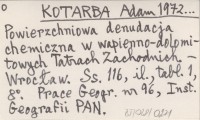 KOTARBA Adam 1972...
Powierzchniowa denudacja
chemiczna w wapienno-dolomi-
towych Tatrach Zachodnich –
Wrocław. Ss. 116, il., tabl. 1,
8°. Prace Geogr. nr 96, Inst.
Geografii PAN.